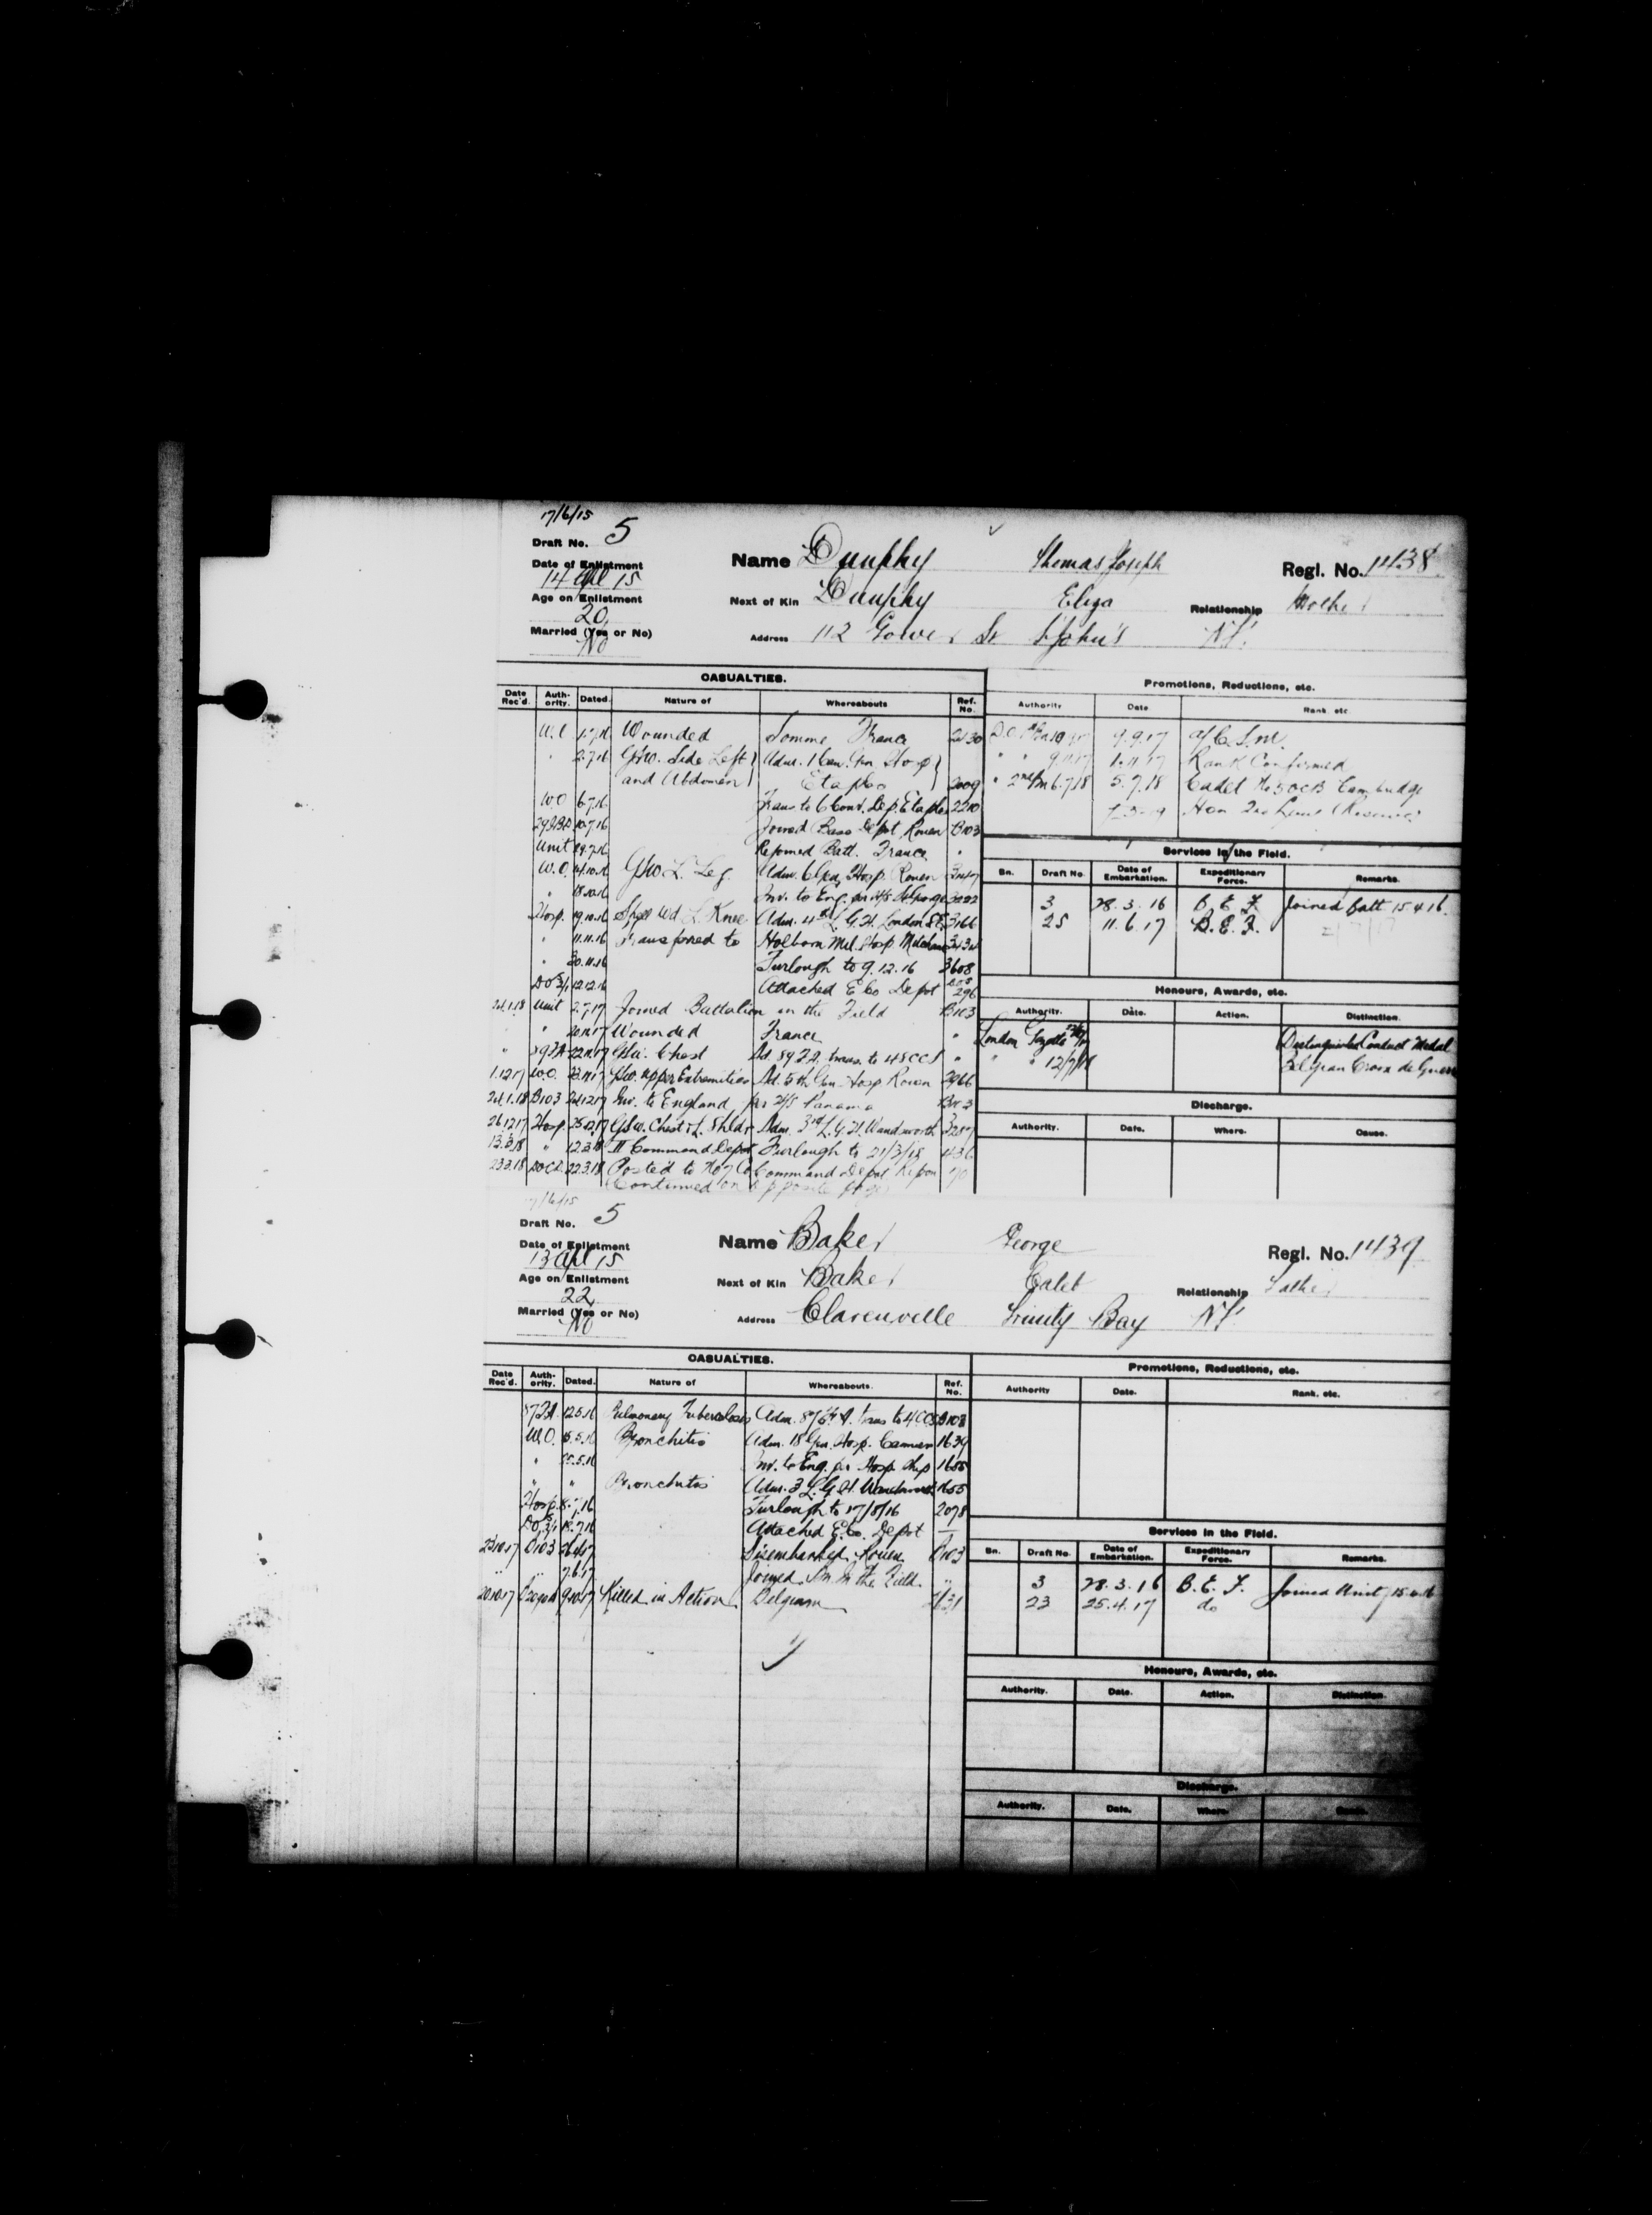 17/6/15
Draft No. 5
Date of Enlistment
14 Apl 15
Name Dunphy Thomas Joseph Regl. No. 1438
Age on Enlistment
20
Next of Kin Dunphy Eliza Relationship Mother
Married (Yes or No)
No
Address 112 Gower St St John's Nf.
CASUALTIES.
Date Rec'd. Authority. Dated. Nature of Whereabouts Ref. No.
1.7.16 Wounded Somme France 2130
" 2.7.16 GSW. Side Left Adm. 1 Can. Gen Hosp
and Abdomen Etaples 2009
W.O 6.7.16 Trans to 6 Conv. Dep Etaples 2210
10.7.16 Joined Base Depot Rouen B103
Unit 29.7.16 Rejoined Batt. France "
W.O. 14.10.16 GSW L. Leg. Adm. 6 Gen Hosp. Rouen
" 18.10.16 Inv. to Eng. per H/S St George
Hosp. 19.10.16 L. Knee Adm. 4th L. G. H. London S.E. 3166
" 11.11.16 Transferred to Holborn Mil. Hosp Mitcham
" 30.11.16 Furlough to 9.12.16 3608
12.12.16 Attached E Co Depot 296
Unit 2.7.17 Joined Battalion in the Field B103
" 20.11.17 Wounded France "
" 22.11.17 GSW. Chest Ad. 89 F.A. trans. to 48 CCS "
1.12.17 W.O. 23.11.17 GSW upper Extremities Ad. 5th Gen Hosp Rouen 2966
24.1.18 B103 24.12.17 Inv. to England per H/S Panama B103
26.12.17 Hosp. 25.12.17 GSW. Chest & L. Shldr Adm. 3rd L. G. H. Wandsworth 3287
13.3.18 " 12.3.18 II Command Depot Furlough to 21/3/18
23.3.18 22.3.18 Posted to No 7 Co Command Depot Ripon
(Continued on opposite page)
Promotions, Reductions, etc.
Authority Date Rank etc.
9.9.17 a/C.S.M.
" " 9.11.17 1.11.17 Rank Confirmed
6.7.18 5.7.18 Cadet No 5 OCB Cambridge
Hon 2nd Lieut (Reserve)
Services in the Field.
Bn. Draft No. Date of Embarkation. Expeditionary Force. Remarks.
3 28.3.16 B.E.F. Joined Batt 15.4.16.
25 11.6.17 B.E.F.
Honours, Awards, etc.
Authority. Date. Action. Distinction.
London Gazette Distinguished Conduct Medal
" " 12/7/18 Belgian Croix de Guerre
Discharge.
Authority. Date. Where. Cause.
17/6/15
Draft No. 5
Date of Enlistment
13 Apl 15
Name Baker George Regl. No. 1439
Age on Enlistment
22
Next of Kin Baker Caleb Relationship Father
Married (Yes or No)
No
Address Clarenville Trinity Bay Nf.
CASUALTIES.
Date Rec'd. Authority. Dated. Nature of Whereabouts. Ref. No.
12.5.16 Pulmonary Tuberculosis Adm. 87 F.A. trans to 4 CCS B103
W.O. Bronchitis Adm. 18 Gen. Hosp. Camiers 1639
" 25.5.16 Inv. to Eng. per Hosp. Ship 1655
" " Bronchitis Adm. 3 L. G. H. Wandsworth 1655
Hosp. 8.7.16 Furlough to 17/8/16 2078
Attached E.Co. Depot
B103 26.4.17 Disembarked Rouen B103
" " 7.6.17 Joined Bn. in the Field "
20.10.17 9.10.17 Killed in Action Belgium
Promotions, Reductions, etc.
Authority Date. Rank. etc.
Services in the Field.
Bn. Draft No. Date of Embarkation. Expeditionary Force. Remarks.
3 28.3.16 B.E.F. Joined Unit 15.4.16
23 25.4.17 do
Honours, Awards, etc.
Authority. Date. Action. Distinction.
Discharge.
Authority. Date. Where. Cause.